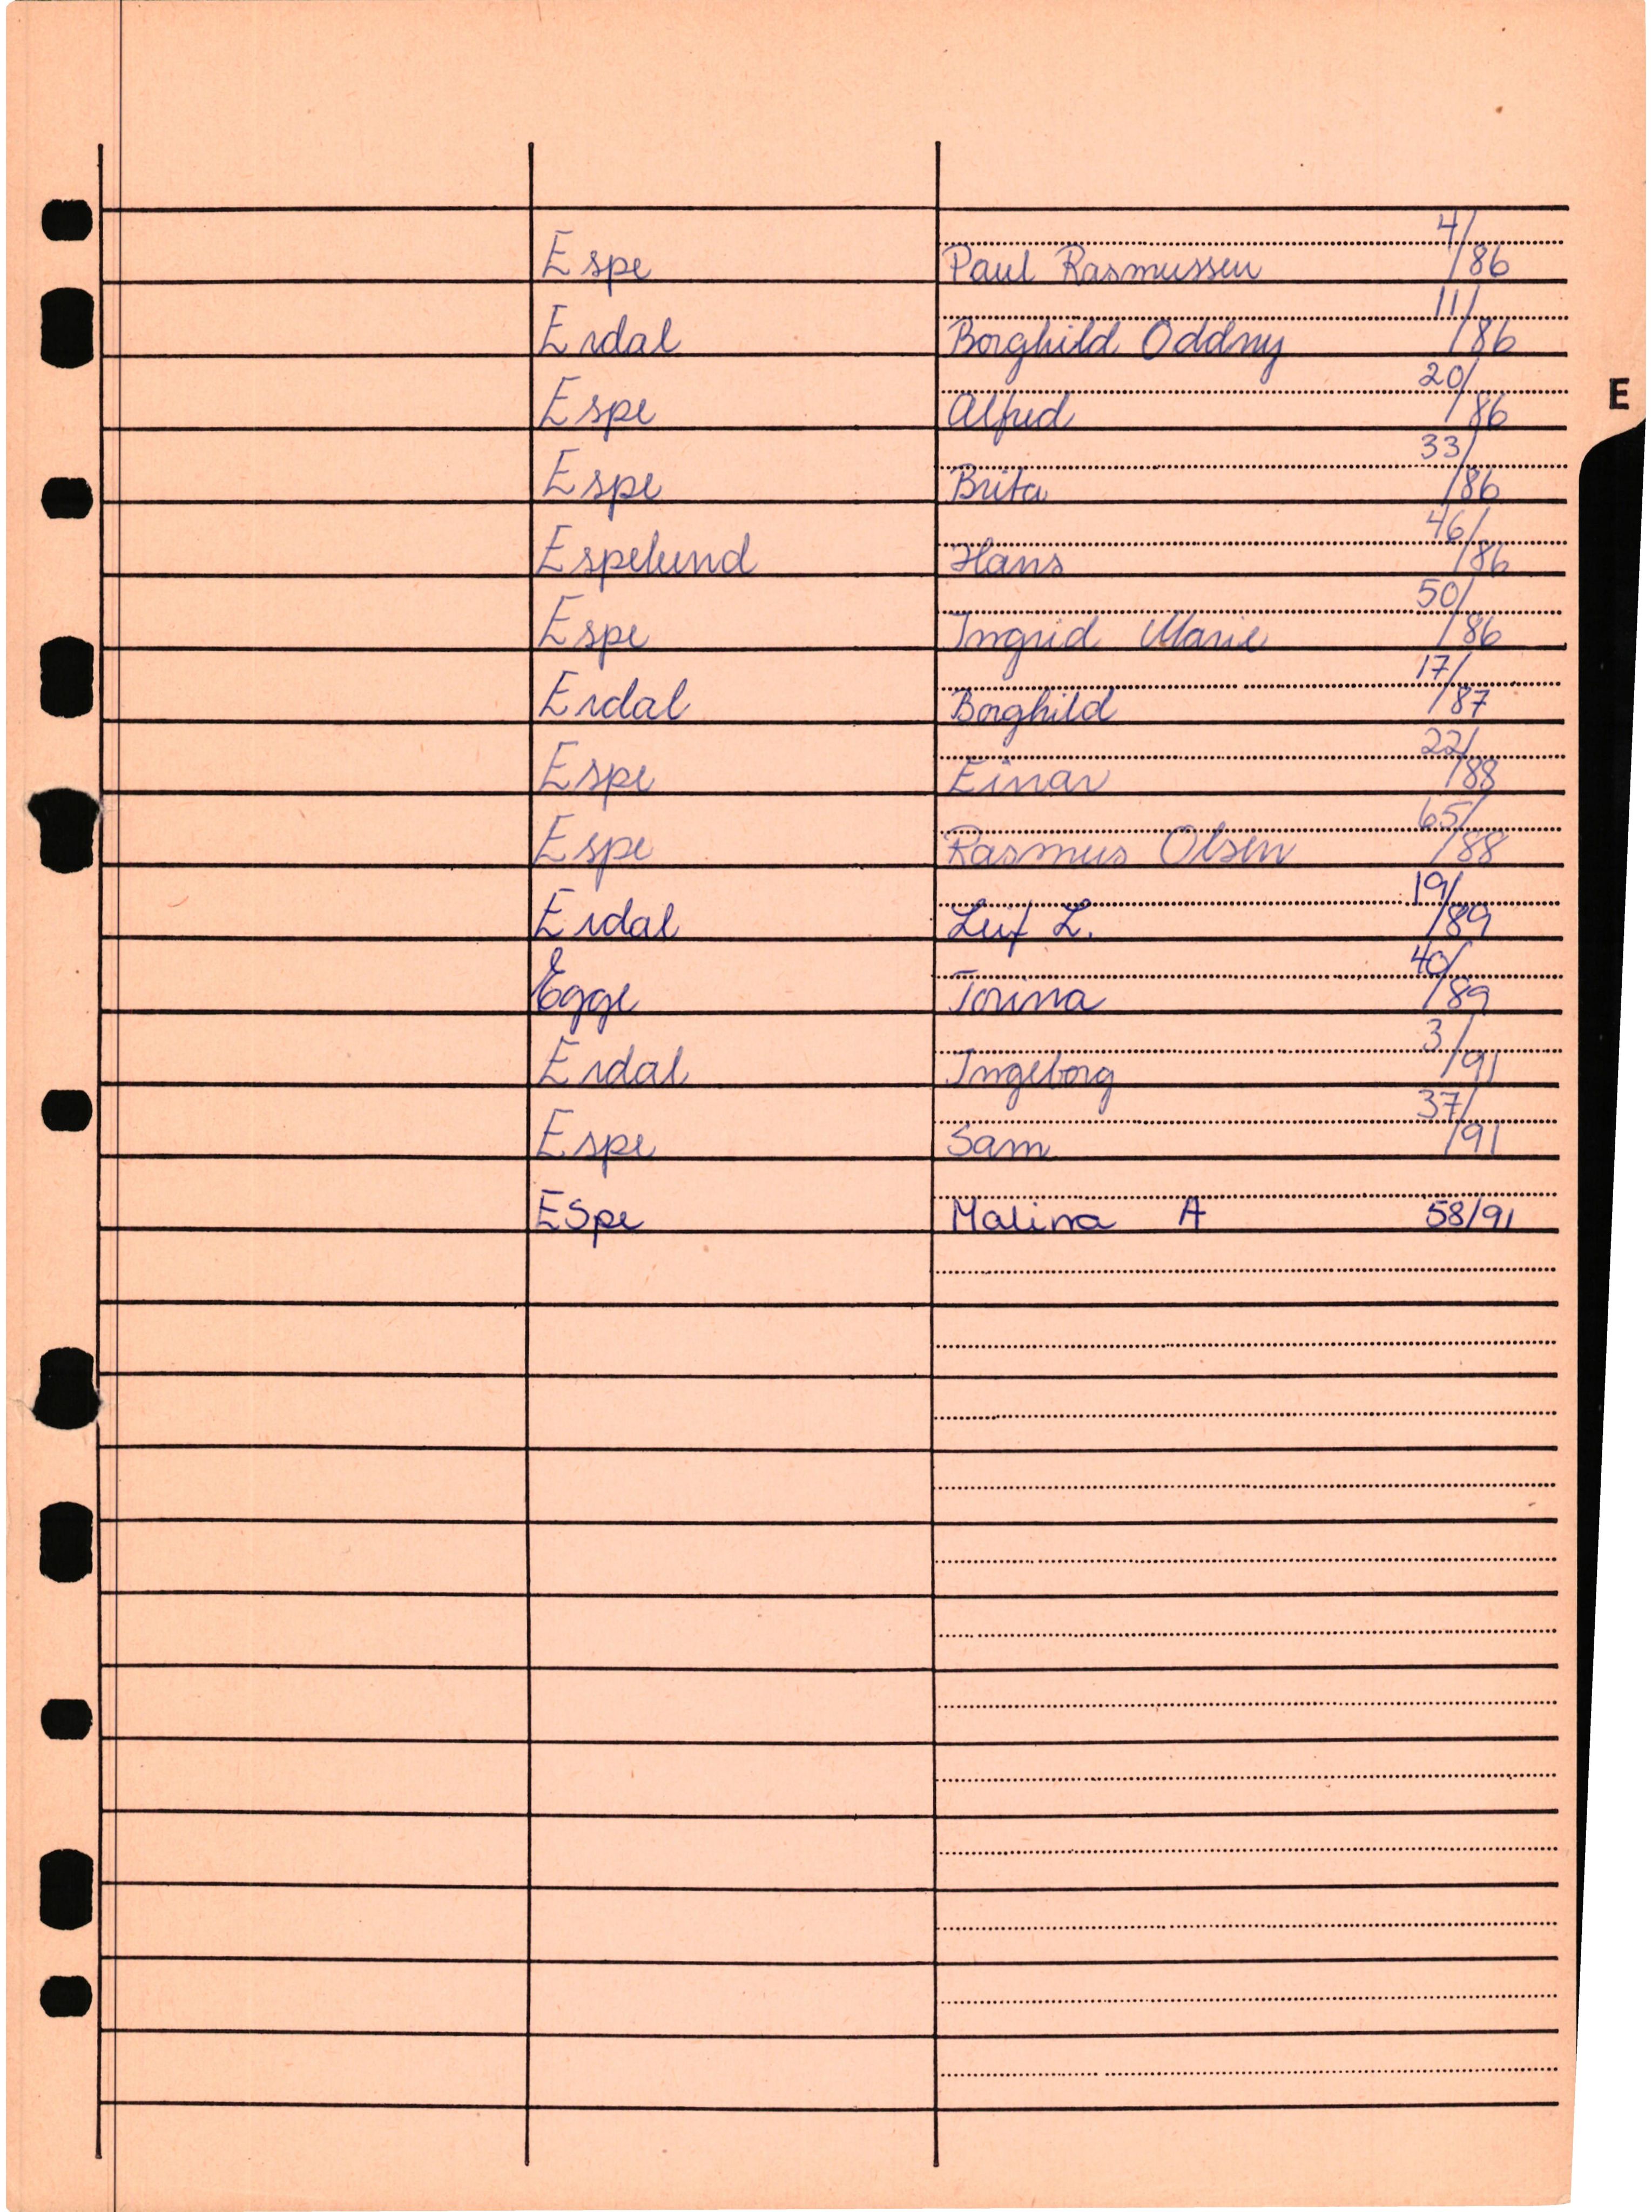 Espe Paul Rasmussen 4/86
Erdal Borghild Oddny 11/86
E
Espe Alfred 20/86
Espe Brita 33/86
Espelund Hans 46/86
Espe Ingrid Marie 50/86
Erdal Borghild 17/87
Espe Einar 22/88
Espe Rasmus Olsen 65/88
Erdal Leif L. 19/89
Egge Torina 40/89
Erdal Ingeborg 3/91
Espe Sam 37/91
ESpe Malina A 58/91